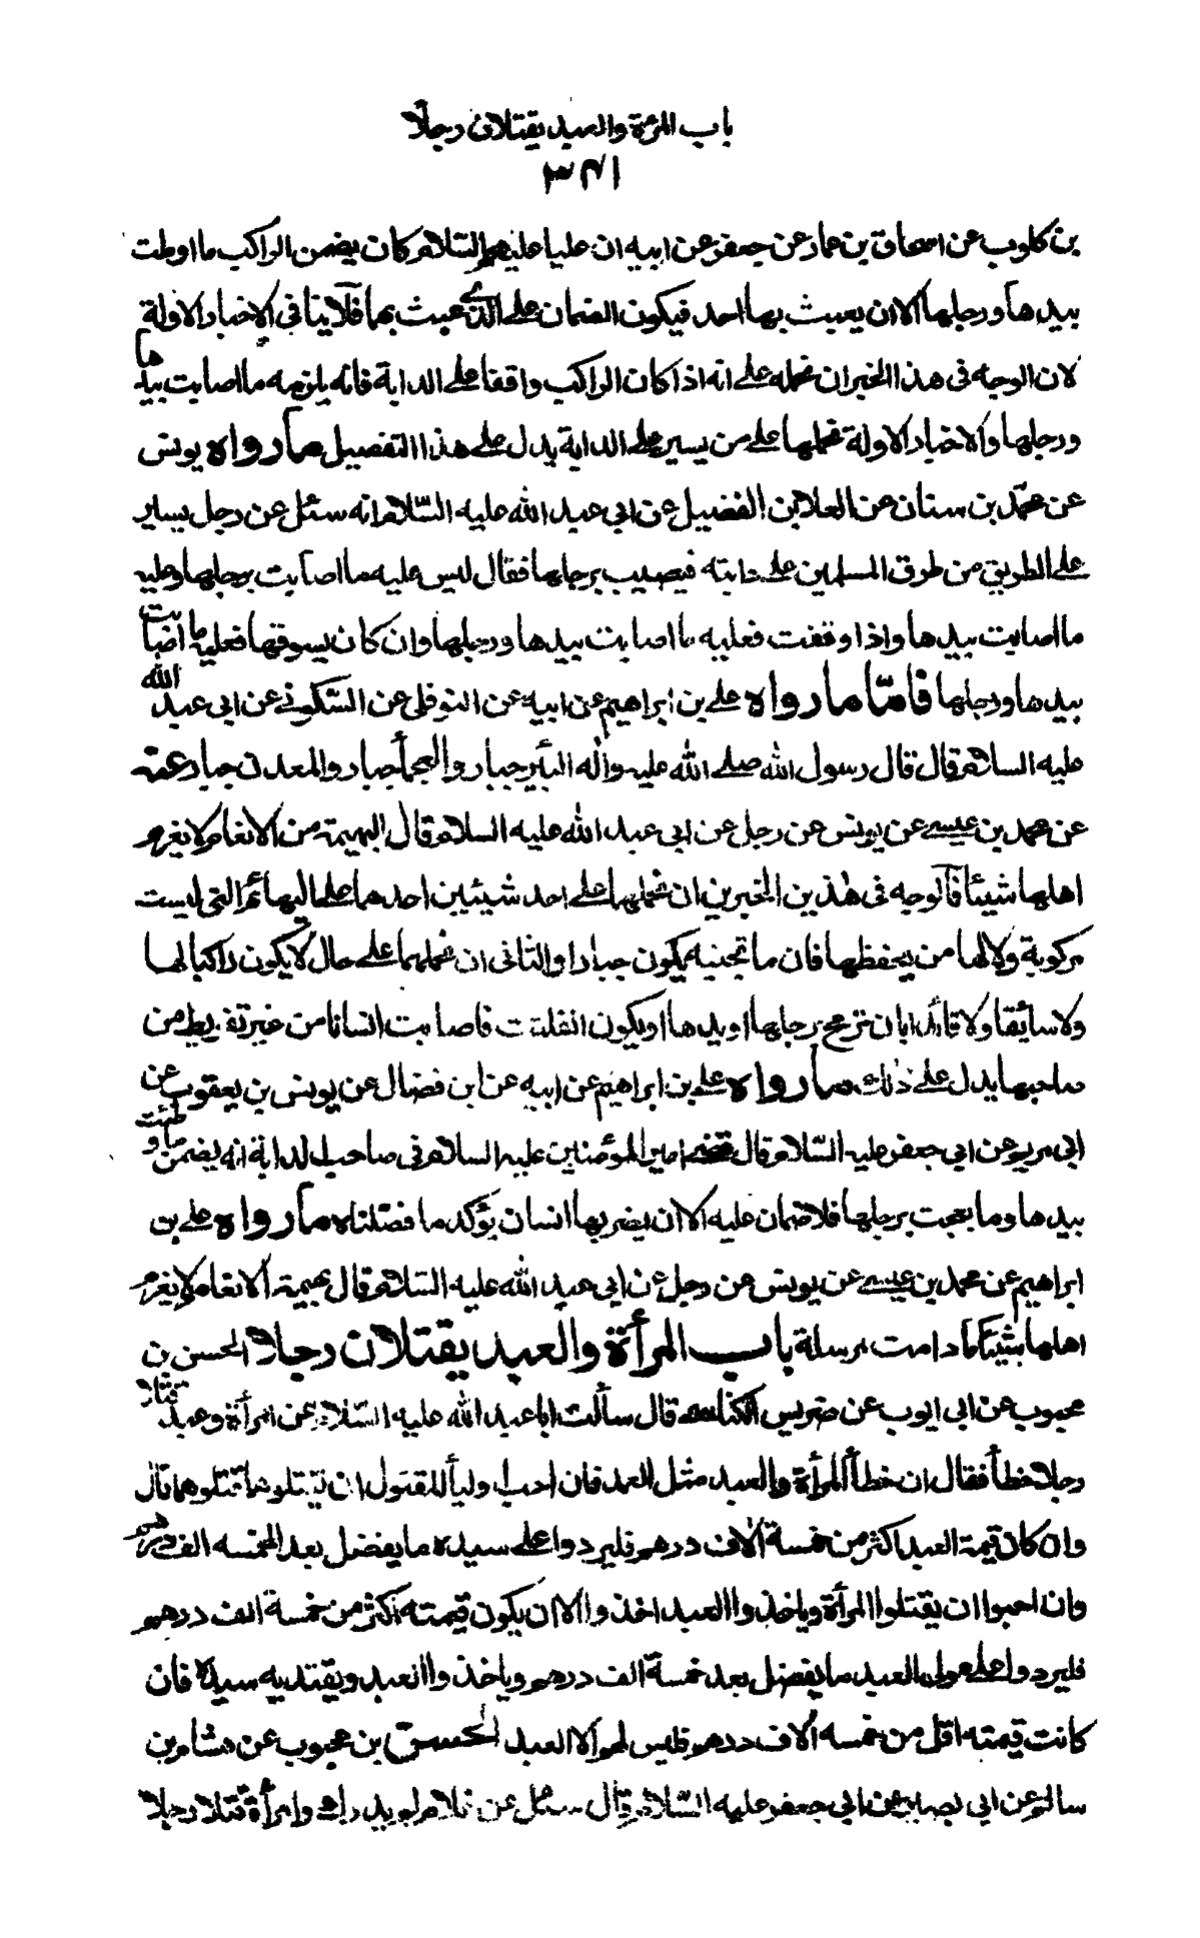 باب المرءة والعبد يقتلان رجلاً
۳۴۱
بن كلوب عن اسحاق بن عمار عن جعفر عن ابيه ان عليا عليهم السّلام كان يضمن الراكب ما اوطت
بيدها ورجلها الا ان يعبث بها احد فيكون الضمان على الّذي عبث بها فلا ينافى الاخبار الاولة
لان الوجه فى هذا الخبر ان نحمله على انه اذا كان الراكب واقفا على الدابة فانه يلزمه ما اصابت بيدها
ورجلها والاخبار الاولة نحملها على من يسير على الدابة يدل على هذا التفصيل ما رواه يونس
عن محمّد بن سنان عن العلا بن الفضيل عن ابي عبد الله عليه السّلام انه سئل عن رجل يسير
على الطريق من طرق المسلمين على دابته فيصيب برجلها فقال ليس عليه ما اصابت برجلها وعليه
ما اصابت بيدها واذا وقفت فعليه ما اصابت بيدها ورجلها وان كان يسوقها فعليه ما اصابت
بيدها ورجلها فامّا ما رواه على بن ابراهيم عن ابيه عن النوفلى عن السّكونى عن ابى عبد الله
عليه السلام قال قال رسول الله صلى الله عليه وآله البئر جبار والعجمأ جبار والمعدن جبار عنه
عن محمد بن عيسى عن يونس عن رجل عن ابى عبد الله عليه السلام قال البهيمة من الانعام لا يغرم
اهلها شيئا فالوجه فى هذين الخبرين ان نحملهما على احد شيئين احدهما على البهائم التى ليست
مركوبة ولا لها من يحفظها فان ما تجنيه يكون جبارا والثانى ان نحملهما على حال لا يكون راكبا لها
ولا سائقا ولا قائدا بان ترمح برجلها او يدها او يكون انفلتت فاصابت انسانا من غير تفريط من
صاحبها يدل على ذلك ما رواه على بن ابراهيم عن ابيه عن ابن فضال عن يونس بن يعقوب عن
ابى مريم عن ابى جعفر عليه السّلام قال قضى امير المؤمنين عليه السلام فى صاحب الدابة انه يضمن ما وطئت
بيدها وما بعجت برجلها فلا ضمان عليه الا ان يضربها انسان يؤكد ما فصّلناه ما رواه على بن
ابراهيم عن محمد بن عيسى عن يونس عن رجل عن ابى عبد الله عليه السّلام قال بهيمة الانعام لا يغرم
اهلها شيئا ما دامت مرسلة باب المرأة والعبد يقتلان رجلا الحسن بن
محبوب عن ابى ايوب عن ضريس الكناسى قال سألت ابا عبد الله عليه السّلام عن امرأة وعبد قتلا
رجلا خطأ فقال ان خطأ المرأة والعبد مثل العمد فان احب وليأ المقتول ان يقتلوهما قتلوهما قال
وان كان قيمة العبد اكثر من خمسة الاف درهم فليردوا على سيده ما يفضل بعد الخمسه الف درهم
وان احبوا ان يقتلوا المرأة وياخذوا العبد اخذوا الا ان يكون قيمته اكثر من خمسة الف درهم
فليردوا على مولى العبد ما يفضل بعد خمسة الف درهم وياخذوا العبد ويفتديه سيده فان
كانت قيمته اقل من خمسه الاف درهم فليس لهم الا العبد الحسن بن محبوب عن هشام بن
سالم عن ابى بصير عن ابى جعفر عليه السّلام قال سئل عن غلام لم يدرك وامرأة قتلا رجلا